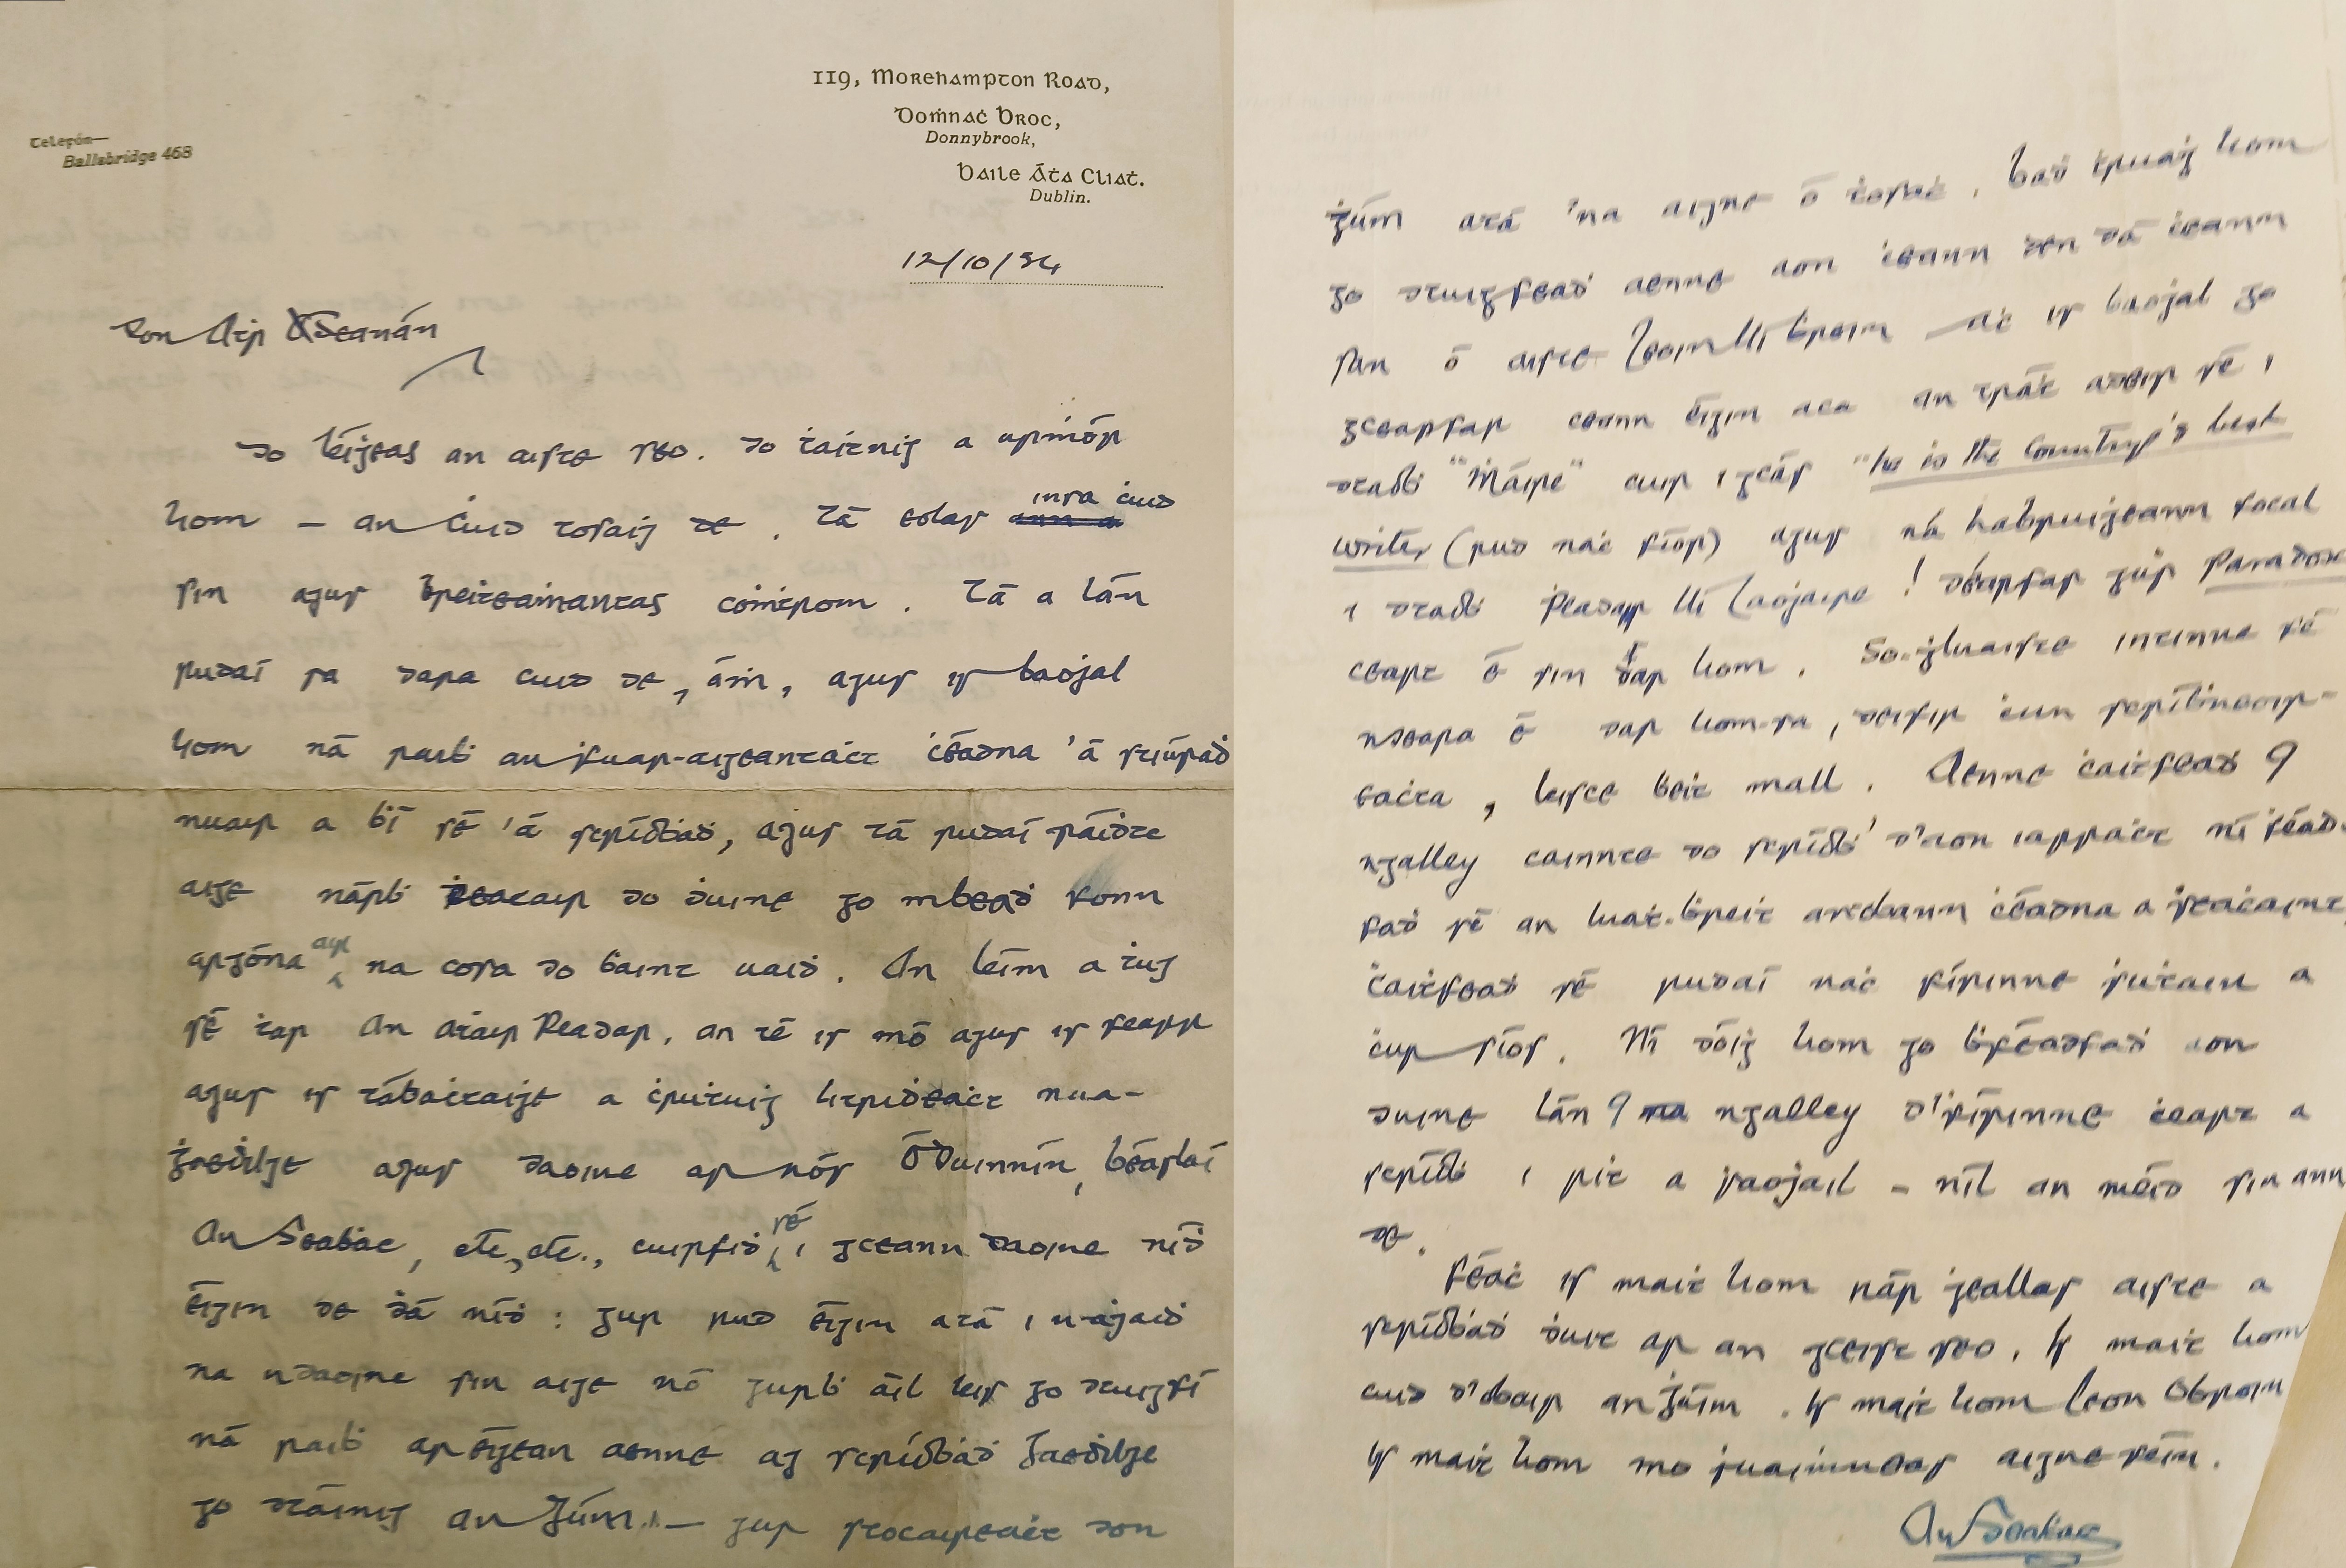 Telefón—
Ballsbridge 468
119, Morehampton Road,
Doṁnaċ Broc,
Donnybrook,
Baile Áṫa Cliaṫ.
Dublin.
12/10/34
Don Aṫr Seanán
Do léiġeas an aiste seo. Do ṫaiṫniġ a urṁór
liom – an ċuid tosaiġ de. Tá eolas insa ċuid
sin agus breiṫeaṁantas coṁṫrom. Tá a lán
rudaí sa dara cuid de, áṁ, agus is baoġal
liom ná raiḃ an fuar-aigeantaċt ċéadna 'á stiúraḋ
nuair a ḃí sé 'á scríoḃaḋ, agus tá rudaí ráiḋte
aige nárḃ ḋeacair do ḋuine go mbeaḋ fonn
argóna air na cosa do ḃaint uaiḋ. An léim a ṫug
sé ṫar An aṫair Peadar, an té is mó agus is fearr
agus is táḃaċtaiġe a ċruṫuiġ litriḋeaċt nua-
Ġaeḋilge agus daoine ar nós Ó Duinnín, Béaslaí
An Seaḃac, etc, etc., cuirfiḋ sé i gceann daoine níḋ
éigin de ḋá níḋ: gur rud éigin atá i n-aġaiḋ
na ndaoine sin aige nó gurḃ áil leis go dtuigfí
ná raiḃ ar éigean aenne ag scríoḃaḋ Gaeḋilge
go dtáinig an Gúm — gur stocaireaċt don
ġúm atá 'na aigne ó ṫosaċ. Baḋ ṫruaġ liom
go dtuigfeaḋ aenne aon ċeann den dá ċeann
san ó aiste Leoin Uí Ḃroin — aċ is baoġal go
gceapfar ceann éigin aca an tráṫ adeir sé i
dtaoḃ "Máire" cuir i gcás "he is the Country's best
writer (rud naċ fíor) agus ná haḃruiġeann focal
i dtaoḃ Ṗeadair Uí Laoġaire! Déarfar gur paradox
ceart é sin dar liom. So-ġluaiste intinne fé
ndeara é dar liom-sa, deifir ċun scríḃneoir-
eaċta, leisce ḃeiṫ mall. Aenne ċaiṫfeaḋ 9
ngalley cainnte do scríoḃ' d'aon iarraċt ní féad-
faḋ sé an luaṫ-ḃreiṫ ċéadna a ṡeaċaint,
ċaiṫfeaḋ sé rudaí naċ fírinne ṡuṫain a
ċur síos. Ní dóiġ liom go ḃféadfaḋ aon
duine lán 9 ngalley d'ḟírinne ċeart a
scríoḃ i riṫ a ṡaoġail – níl an méid sin ann
de.
Féaċ is maiṫ liom nár ġeallas aiste a
scríoḃaḋ ḋuit ar an gceist seo. Is maiṫ liom
cuid d'oḃair an Ġúim. Is maiṫ liom Leon Óḃroin
Is maiṫ liom mo ṡuaiṁneas aigne féin.
An Seaḃac